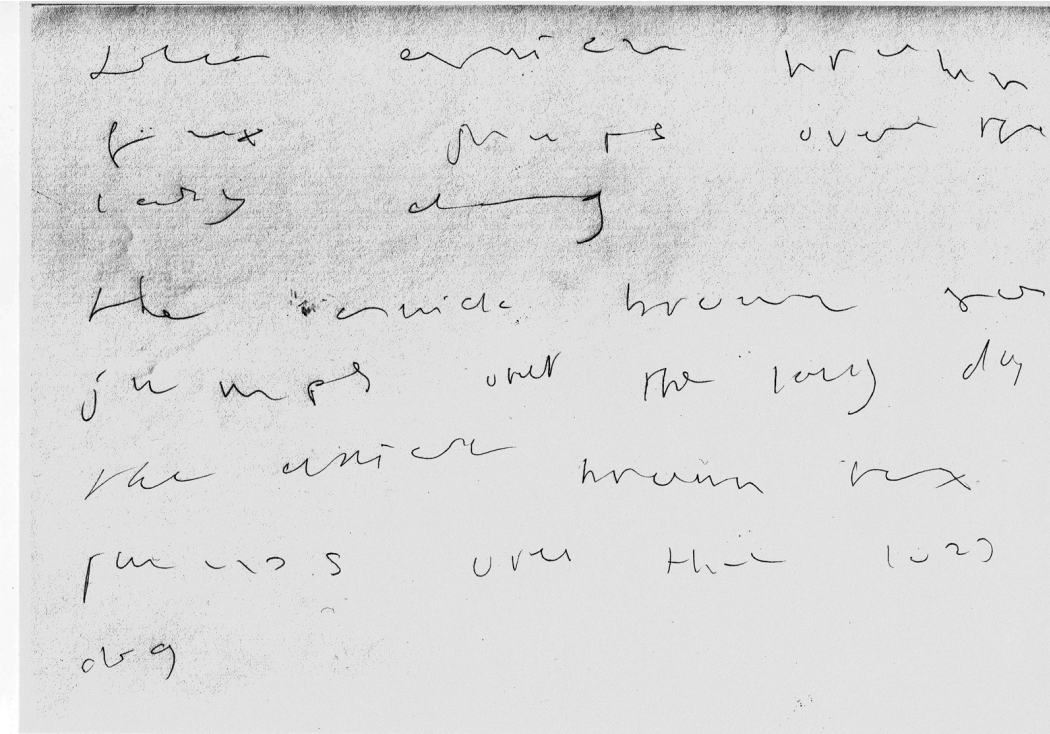 the quick brown
fox jumps over the
lazy dog
the quick brown fox
jumps over the lazy dog
the quick brown fox
jumps over the lazy
dog